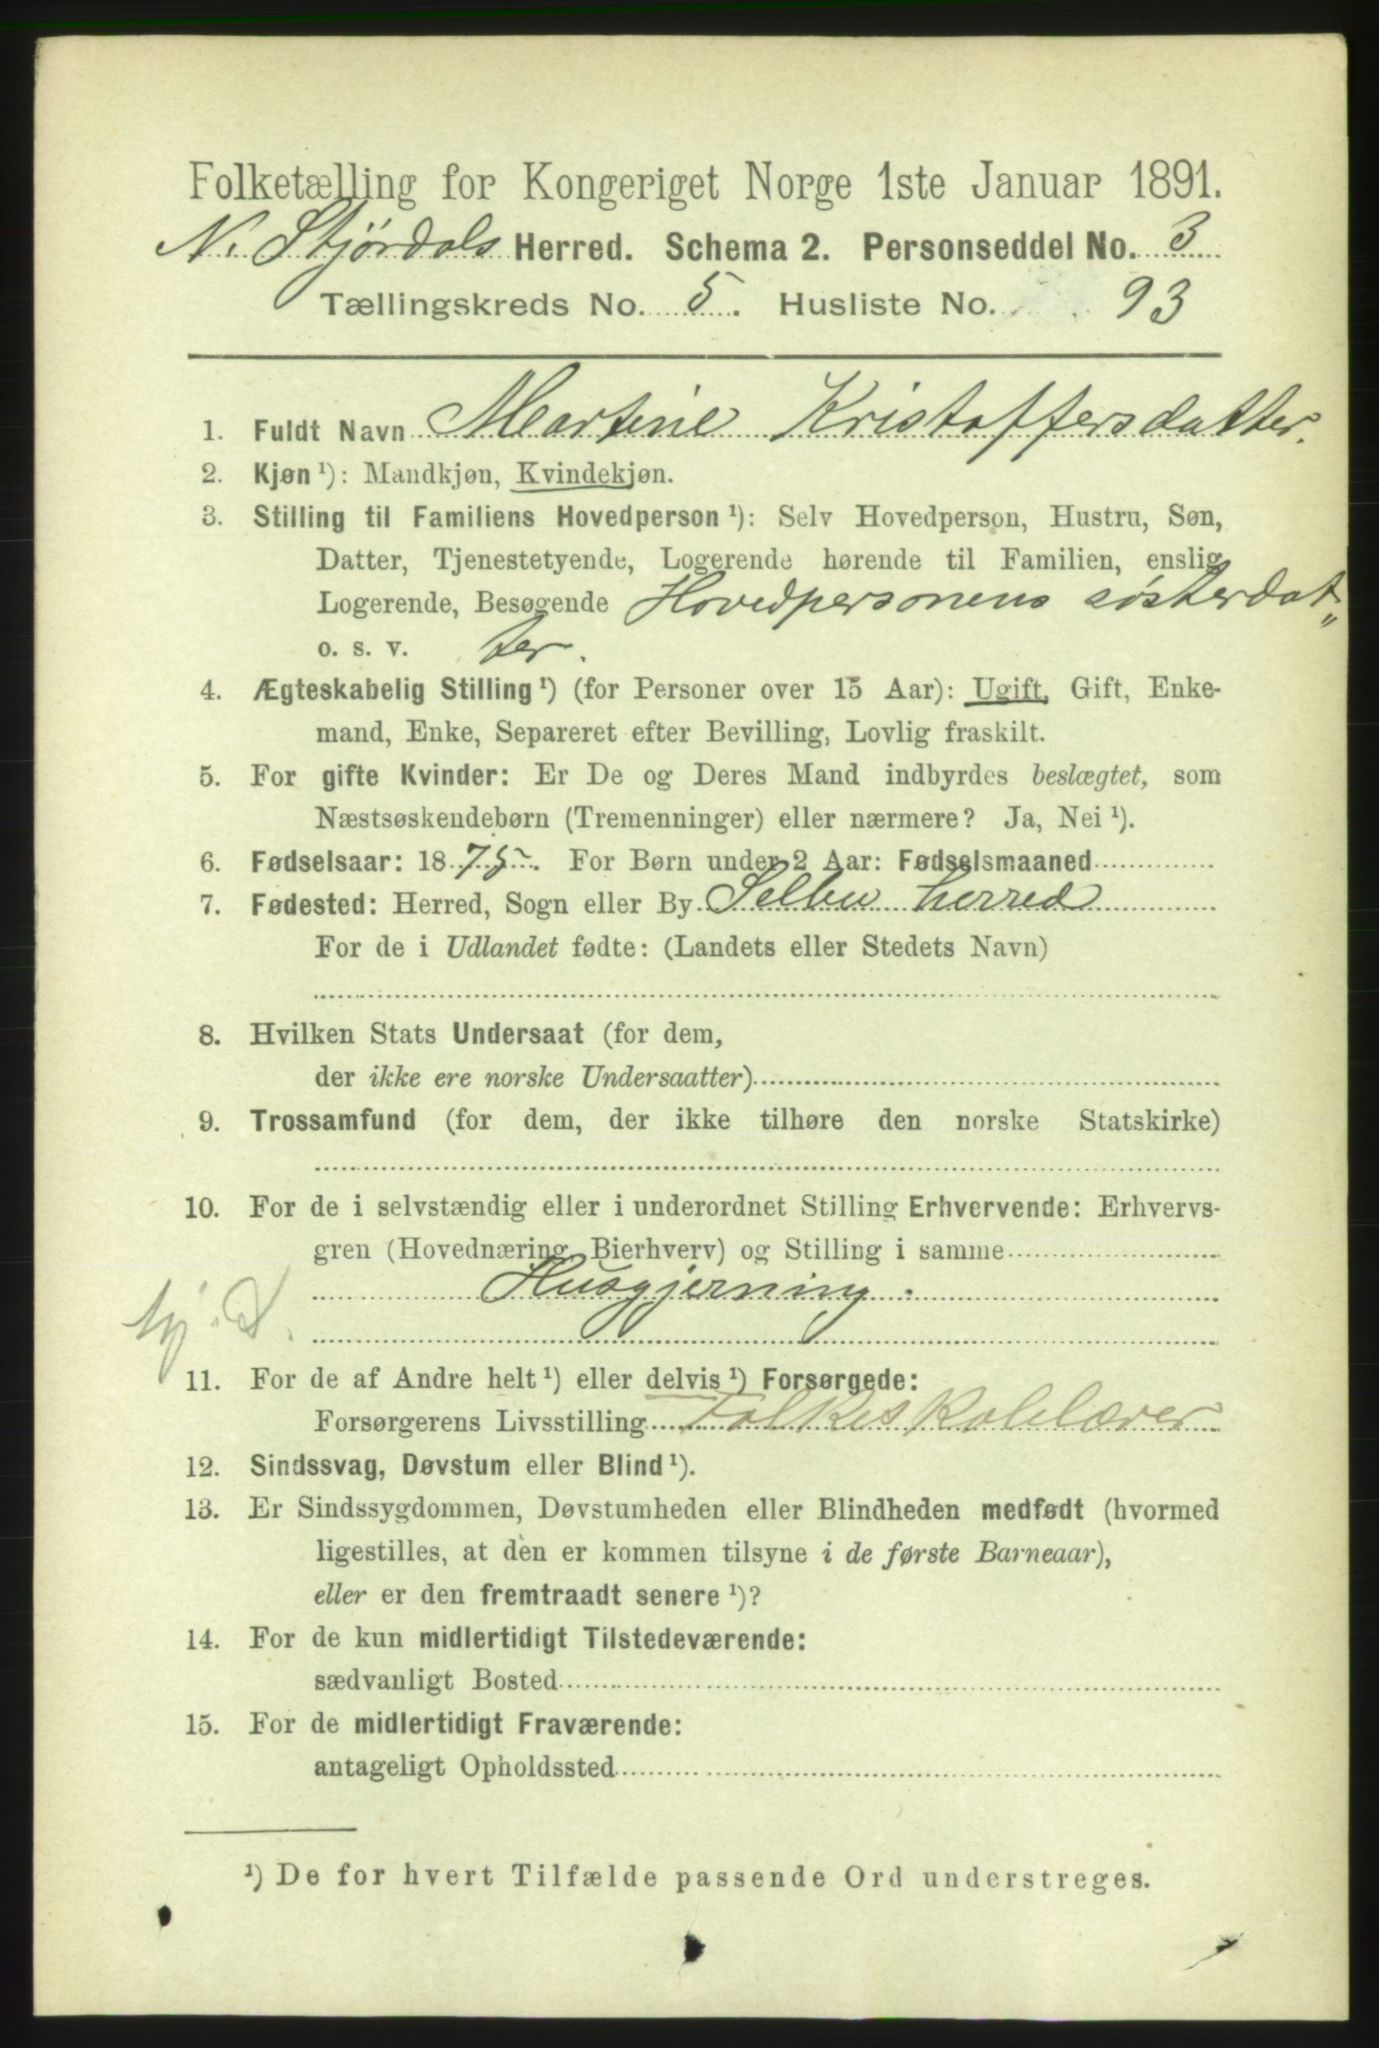 Folketælling for Kongeriget Norge 1ste Januar 1891.
N. Stjørdals Herred. Schema 2. Personseddel No. 3
Tællingskreds No. 5. Husliste No. 93
1. Fuldt Navn Martine Kristoffersdatter.
2. Kjøn ¹): Mandkjøn, Kvindekjøn.
3. Stilling til Familiens Hovedperson ¹): Selv Hovedperson, Hustru, Søn,
Datter, Tjenestetyende, Logerende hørende til Familien, enslig
Logerende, Besøgende Hovedpersonens søsterdat„
o. s. v. ter.
4. Ægteskabelig Stilling ¹) (for Personer over 15 Aar): Ugift, Gift, Enke-
mand, Enke, Separeret efter Bevilling, Lovlig fraskilt.
5. For gifte Kvinder: Er De og Deres Mand indbyrdes beslægtet, som
Næstsøskendebørn (Tremenninger) eller nærmere? Ja, Nei ¹).
6. Fødselsaar: 1875. For Børn under 2 Aar: Fødselsmaaned
7. Fødested: Herred, Sogn eller By Selbu herred
For de i Udlandet fødte: (Landets eller Stedets Navn)
8. Hvilken Stats Undersaat (for dem,
der ikke ere norske Undersaatter)
9. Trossamfund (for dem, der ikke tilhøre den norske Statskirke)
10. For de i selvstændig eller i underordnet Stilling Erhvervende: Erhvervs-
gren (Hovednæring, Bierhverv) og Stilling i samme
Husgjerning.
11. For de af Andre helt ¹) eller delvis ¹) Forsørgede:
Forsørgerens Livsstilling Folkeskolelærer
12. Sindssvag, Døvstum eller Blind ¹).
13. Er Sindssygdommen, Døvstumheden eller Blindheden medfødt (hvormed
ligestilles, at den er kommen tilsyne i de første Barneaar),
eller er den fremtraadt senere ¹)?
14. For de kun midlertidigt Tilstedeværende:
sædvanligt Bosted
15. For de midlertidigt Fraværende:
antageligt Opholdssted
¹) De for hvert Tilfælde passende Ord understreges.